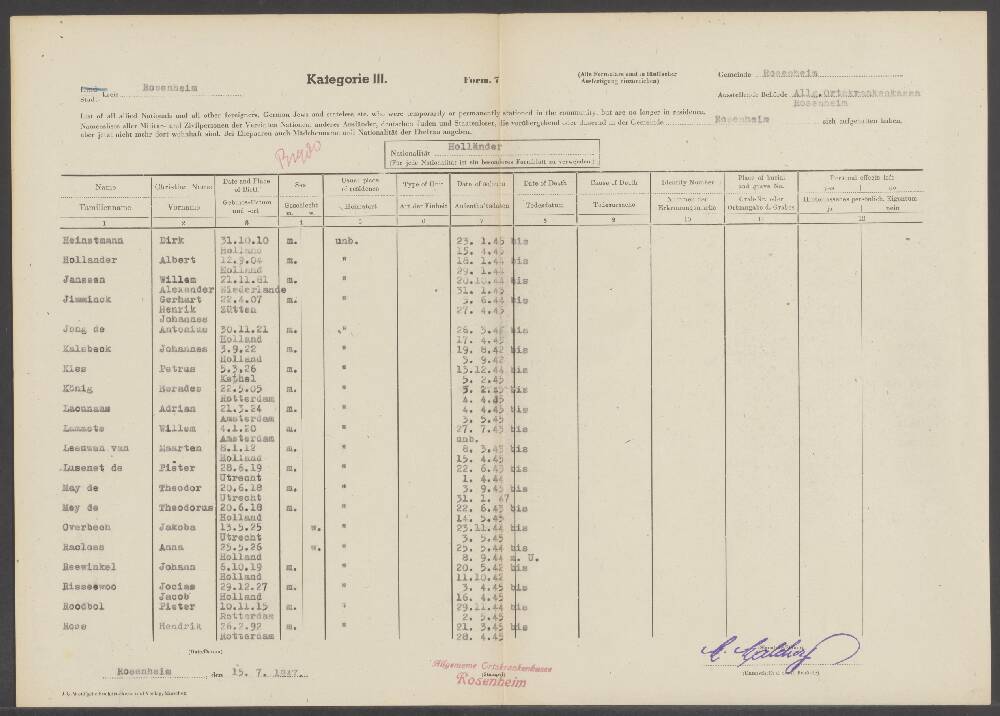 Kategorie III.
Form. 7
(Alle Formulare sind in 10facher
Ausfertigung einzureichen)
Gemeinde Rosenheim
Land-
Stadt- kreis Rosenheim
Ausstellende Behörde Allg.Ortskrankenkassen
Rosenheim
List of all allied Nationals and all other foreigners, German Jews and stateless etc. who were temporarily or permanently stationed in the community, but are no longer in residence.
Namenslisten aller Militär- und Zivilpersonen der Vereinten Nationen, anderer Ausländer, deutschen Juden und Staatenloser, die vorübergehend oder dauernd in der Gemeinde Rosenheim sich aufgehalten haben,
aber jetzt nicht mehr dort wohnhaft sind. Bei Ehepaaren auch Mädchenname und Nationalität der Ehefrau angeben.
Nationalität Holländer
(Für jede Nationalität ist ein besonderes Formblatt zu verwenden)
Name Christian Name Date and Place of Birth Sex Usual place of residence Type of Unit Date of Date of Death Cause of Death Identity Number Place of burial and grave No. Personal effects left yes | no
Familienname Vorname Geburts-Datum und -ort Geschlecht m. w. Heimatort Art der Einheit Aufenthaltsdaten Todesdatum Todesursache Nummer der Erkennungsmarke Grab-Nr. oder Ortsangabe d. Grabes Hinterlassenes persönlich. Eigentum ja | nein
1 2 3 4 5 6 7 8 9 10 11 12
Heinstmann Dirk 31.10.10 m. unb. 23. 1.45 bis
Holland 15. 4.45
Hollander Albert 12.9.04 m. " 18. 1.44 bis
Holland 29. 1.44
Janssen Willem 21.11.81 m. " 20.10.44 bis
Alexander Niederlande 31. 1.45
Jimminck Gerhart 22.4.07 m. " 5. 6.44 bis
Henrik Zütten 27. 4.45
Johannes
Jong de Antonius 30.11.21 m. " 26. 3.42 bis
Holland 17. 4.45
Kalsbeck Johannes 3.9.22 m. " 19. 8.42 bis
Holland 5. 9.42
Kies Petrus 5.3.26 m. " 13.12.44 bis
Kethel 5. 2.45
König Herades 22.5.05 m. " 5. 2.45 bis
Rotterdam 4. 4.45
Laounaas Adrian 21.3.24 m. " 4. 4.45 bis
Amsterdam 3. 5.45
Lammets Willem 4.1.20 m. " 27. 7.43 bis
Amsterdam unb.
Leeuwen van Maarten 8.1.12 m. " 8. 3.45 bis
Holland 15. 4.45
Lusenet de Pieter 28.6.19 m. " 22. 6.43 bis
Utrecht 1. 4.44
May de Theodor 20.6.18 m. " 3. 9.45 bis
Utrecht 31. 1. 47
Mey de Theodorus 20.6.18 m. " 22. 6.43 bis
Holland 14. 5.45
Overbech Jakoba 13.5.25 w. " 23.11.44 bis
Utrecht 3. 5.45
Racloss Anna 25.5.26 w. " 25. 5.44 bis
Holland 8. 9.44 m. U.
Reewinkel Johann 6.10.19 m. " 20. 5.42 bis
Holland 11.10.42
Risseewoo Jocias 29.12.27 m. " 3. 4.45 bis
Jacob Holland 16. 4.45
Roodbol Pieter 10.11.15 m. " 29.11.44 bis
Rotterdam 2. 5.45
Roos Hendrik 26.2.92 m. " 21. 3.45 bis
Rotterdam 28. 4.45
(Ort/Datum)
Rosenheim, den 15. 7. 1947.
Allgemeine Ortskrankenkasse
(Stempel)
Rosenheim